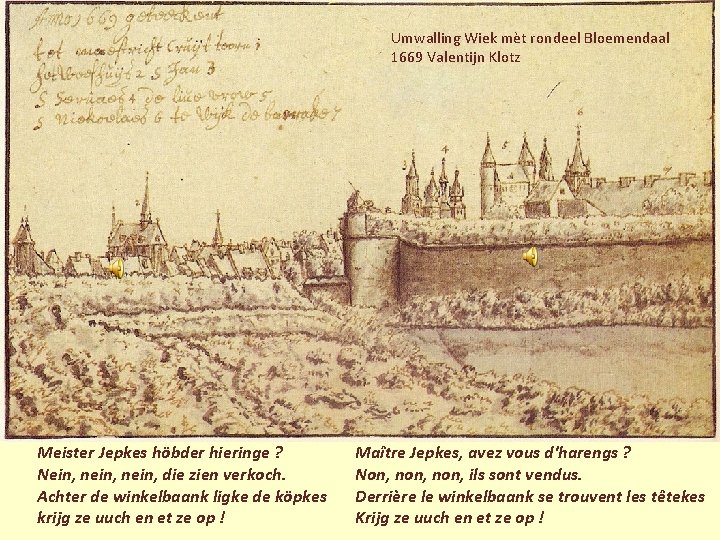 Anno 1669 geteekent
tot maestricht Cruijt toorn 1
2 S Jan 3
S Servaes 4 de live vrow 5
S Niekolaes 6 te Wijk de 7
Umwalling Wiek mèt rondeel Bloemendaal
1669 Valentijn Klotz
2
3
4
5
6
7
Meister Jepkes höbder hieringe ?
Nein, nein, nein, die zien verkoch.
Achter de winkelbaank ligke de köpkes
krijg ze uuch en et ze op !
Maître Jepkes, avez vous d'harengs ?
Non, non, non, ils sont vendus.
Derrière le winkelbaank se trouvent les têtekes
Krijg ze uuch en et ze op !